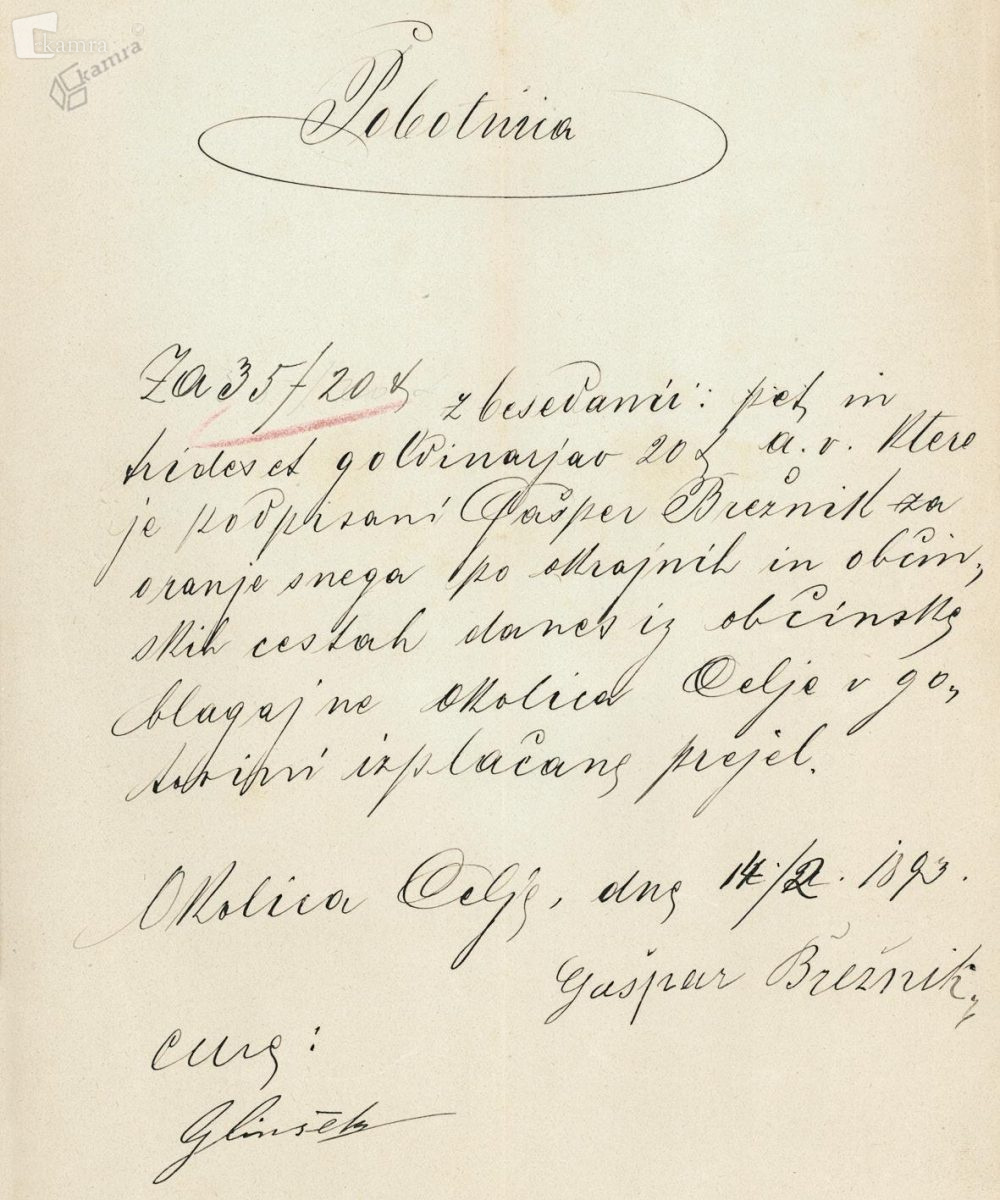 kamra
kamra
Pobotnica
Za 35 f 20 x z besedami: pet in
trideset goldinarjav 20 x a. v. ktere
je podpisani Gašper Brežnik za
oranje snega po okrajnih in občin-
skih cestah danes iz občinske
blagajne okolica Celje v go-
tovini izplačane prejel.
Okolica Celje, dne 14/2. 1893.
Gašpar Brežnik
Glinšek